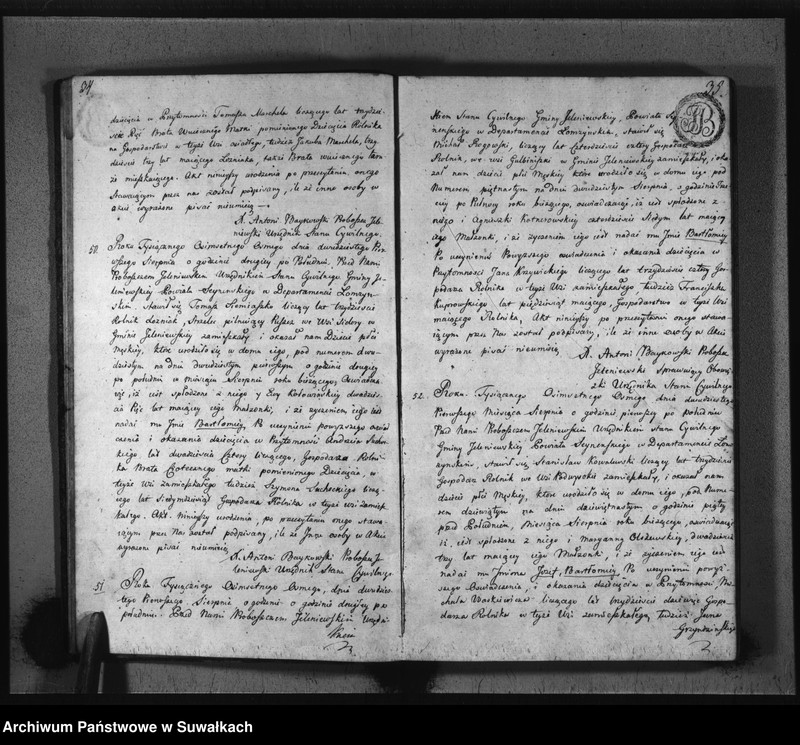 34
dziecięcia w Przytomności Tomasza Marchela liczącego lat trzydzieści
Brata Wuecznego Matki pomienionego Dziecięcia Rolnika
na Gospodarstwie w teyże Wsi
dzieści trzy lat maiącego także Brata
że mieszkaiącego. Akt ninieyszy urodzenia po przeczytaniu onego
Stawaiącym przez nas został podpisany, ile że inne osoby w
Akcie wyrażone pisać nieumieią
X. Antoni Baykowski Proboszcz Jele-
niewski Urzędnik Stanu Cywilnego
50. Roku Tysiącznego Osimsetnego Osmego dnia dwudziestego Pier-
wszego Sierpnia o godzinie drugiey po Południu. Przed Nami
Proboszczem Jeleniewskim Urzędnikiem Stanu Cywilnego Gminy Je-
leniewskiey Powiatu Seyneńskiego w Departamencie Łomżyń-
skim. Stawił się Tomasz liczący lat trzydzieści
Rolnik Strzelec pilnuiący Puszczy we Wsi
Gminie Jeleniewskiey zamieszkały i okazał nam Dziecie płci
Męskiey, które urodziło się w domu iego, pod numerem dwu-
dziestym na dniu dwudziestym pierwszym o godzinie drugiey
po południu w miesiącu Sierpniu roku bieżącego, Oswiadcza-
iąc, iż iest spłodzone z niego y Ewy dwadzie-
ścia Pięć lat maiącey iego Małżonki, i że życzeniem iego iest
nadać mu Jmie Bartłomiey. Po uczynieniu powyższego oświad-
czenia i okazaniu dziecięcia w Przytomności Andrzeia
lat dwadzieścia Cztery liczącego, Gospodarza Rolni-
ka Brata matki pomienionego Dziecięcia, w
teyże Wsi zamieszkałego tudzież Szymona Suchockiego liczą-
cego lat Siedymdziesiąt Gospodarza Rolnika w teyże wsi zamiesz-
kałego. Akt ninieyszy urodzenia, po przeczytaniu onego stawa-
iącym przez Nas został podpisany, ile że Inne osoby w Akcie
wyrażone pisać nieumieią
X. Antoni Baykowski Proboszcz Je-
leniewski Urzędnik Stanu Cywilnego
51. Roku Tysiącznego Osimsetnego Osmego, dnia dwudzie-
stego Pierwszego, Sierpnia o godzinie drugiey po
południu. Przed Nami Proboszczem Jeleniewskim Urzędni-
kiem
35.
kiem Stanu Cywilnego Gminy Jeleniewskiey, Powiatu Sey-
neńskiego w Departamencie Łomżyńskim, stawił się
Michał Rogowski, liczący lat Czterdzieści Gospodarz
Rolnik, we wsi Gulbiniszki w Gminie Jeleniewskiey zamieszkały, i oka-
zał nam dziecie płci Męskiey które urodziło się w domu iego, pod
Numerem piętnastym na dniu dwudziestym Sierpnia, o godzinie
po Północy roku bieżącego, oswiadczaiąc, iż iest spłodzone z
niego i Agnieszki czterdzieście Siedym lat maiącey
iego Małżonki, i że życzeniem iego iest nadać mu Jmie Bartłomiey
Po uczynieniu Powyższego oswiadczenia i okazaniu dziecięcia w
Przytomności Jana Krzywickiego liczącego lat trzydzieście cztery Gos-
podarza Rolnika w teyże Wsi zamieszkałego tudzież Franciszka
lat pięćdziesiąt maiącego, Gospodarstwo w teyże Wsi
maiącego Rolnika, Akt ninieyszy po przeczytaniu onego stawa-
iącym przez Nas został podpisany, ile że inne osoby w Akcie
wyrażone pisać nieumieią
X. Antoni Baykowski Proboszcz
Jeleniewski Sprawuiący Obowią-
zki Urzędnika Stanu Cywilnego
52. Roku Tysiącznego Osimsetnego Osmego dnia dwudziestego
Pierwszego Miesiąca Sierpnia o godzinie pierwszey po południu
Przed Nami Proboszczem Jeleniewskim Urzędnikiem Stanu Cywilnego
Gminy Jeleniewskiey Powiatu Seyneńskiego w Departamencie Łom-
żyńskim, stawił się Stanisław Kowalewski liczący lat trzydzieście
Gospodarz Rolnik we Wsi Podwysokie zamieszkały, i okazał nam
dziecie płci Męskiey, które urodziło się w domu iego, pod Nume-
rem dziewiątym na dniu dziewiętnastym o godzinie piątey
przed Południem, Miesiąca Sierpnia roku bieżącego, oswiadczaiąc
iż iest spłodzone z niego i Maryanny Olszewskiey, dwadzieścia
trzy lat maiącey iego Małżonki, i że życzeniem iego iest
nadać mu Jmiona Jozef, Bartłomiey. Po uczynieniu powyż-
szego Oswiadczenia, i okazaniu dziecięcia w Przytomności Mi-
chała liczącego lat trzydzieści dziewięć Gospo-
darza Rolnika w teyże Wsi zamieszkałego, tudzież Jana
Archiwum Państwowe w Suwałkach